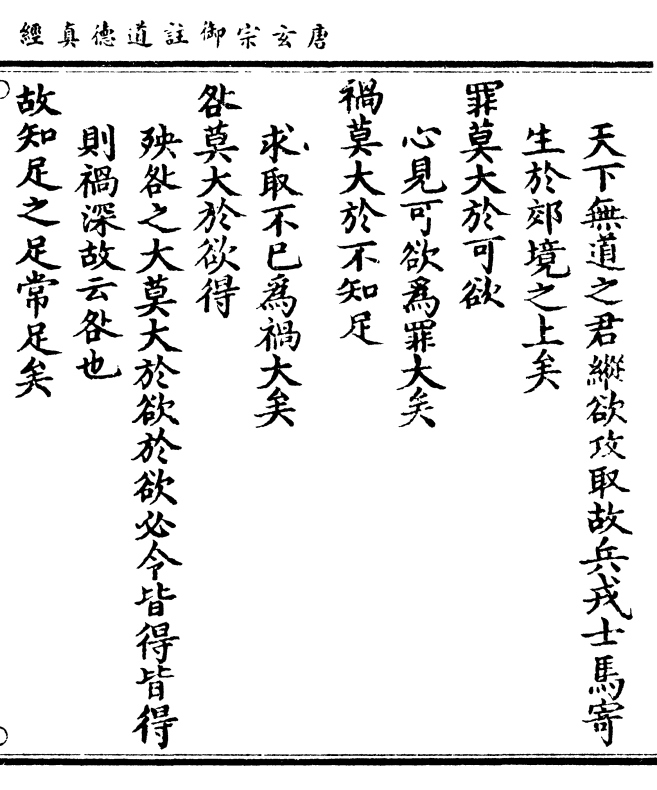 唐玄宗御註道德真經
天下無道之君縱欲攻取故兵戎士馬寄
生於郊境之上矣
罪莫大於可欲
心見可欲為罪大矣
禍莫大於不知足
求取不已為禍大矣
咎莫大於欲得
殃咎之大莫大於欲於欲必令皆得皆得
則禍深故云咎也
故知足之足常足矣